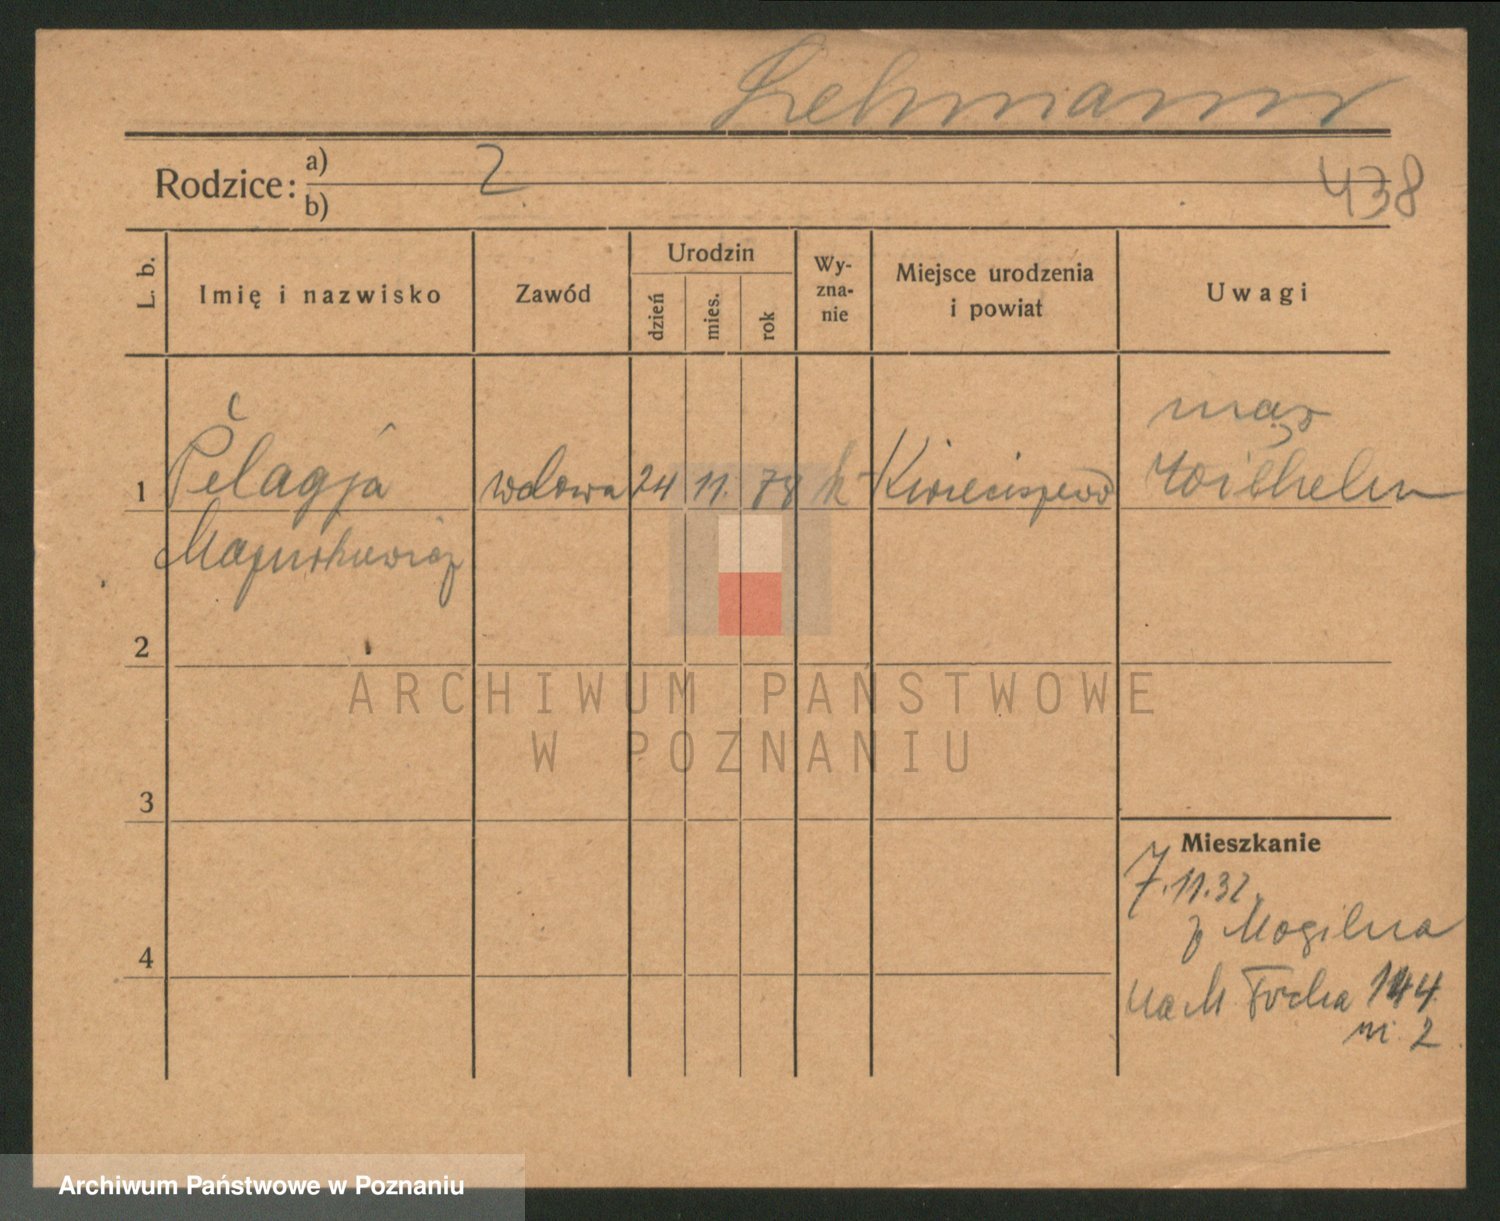 Lehmann
Rodzice: a) 2
b)
438
L. b.
Imię i nazwisko
Zawód
Urodzin
dzień
mies.
rok
Wy-
zna-
nie
Miejsce urodzenia
i powiat
Uwagi
mąż
1 Pelagja wdowa 24 11. 78 k Kwieciszewo Wilhelm
Mazurkiewicz
2
3
4
Mieszkanie
7.11.32.
z Mogilna
na M. Focha 144
m. 2
ARCHIWUM PAŃSTWOWE
W POZNANIU
Archiwum Państwowe w Poznaniu